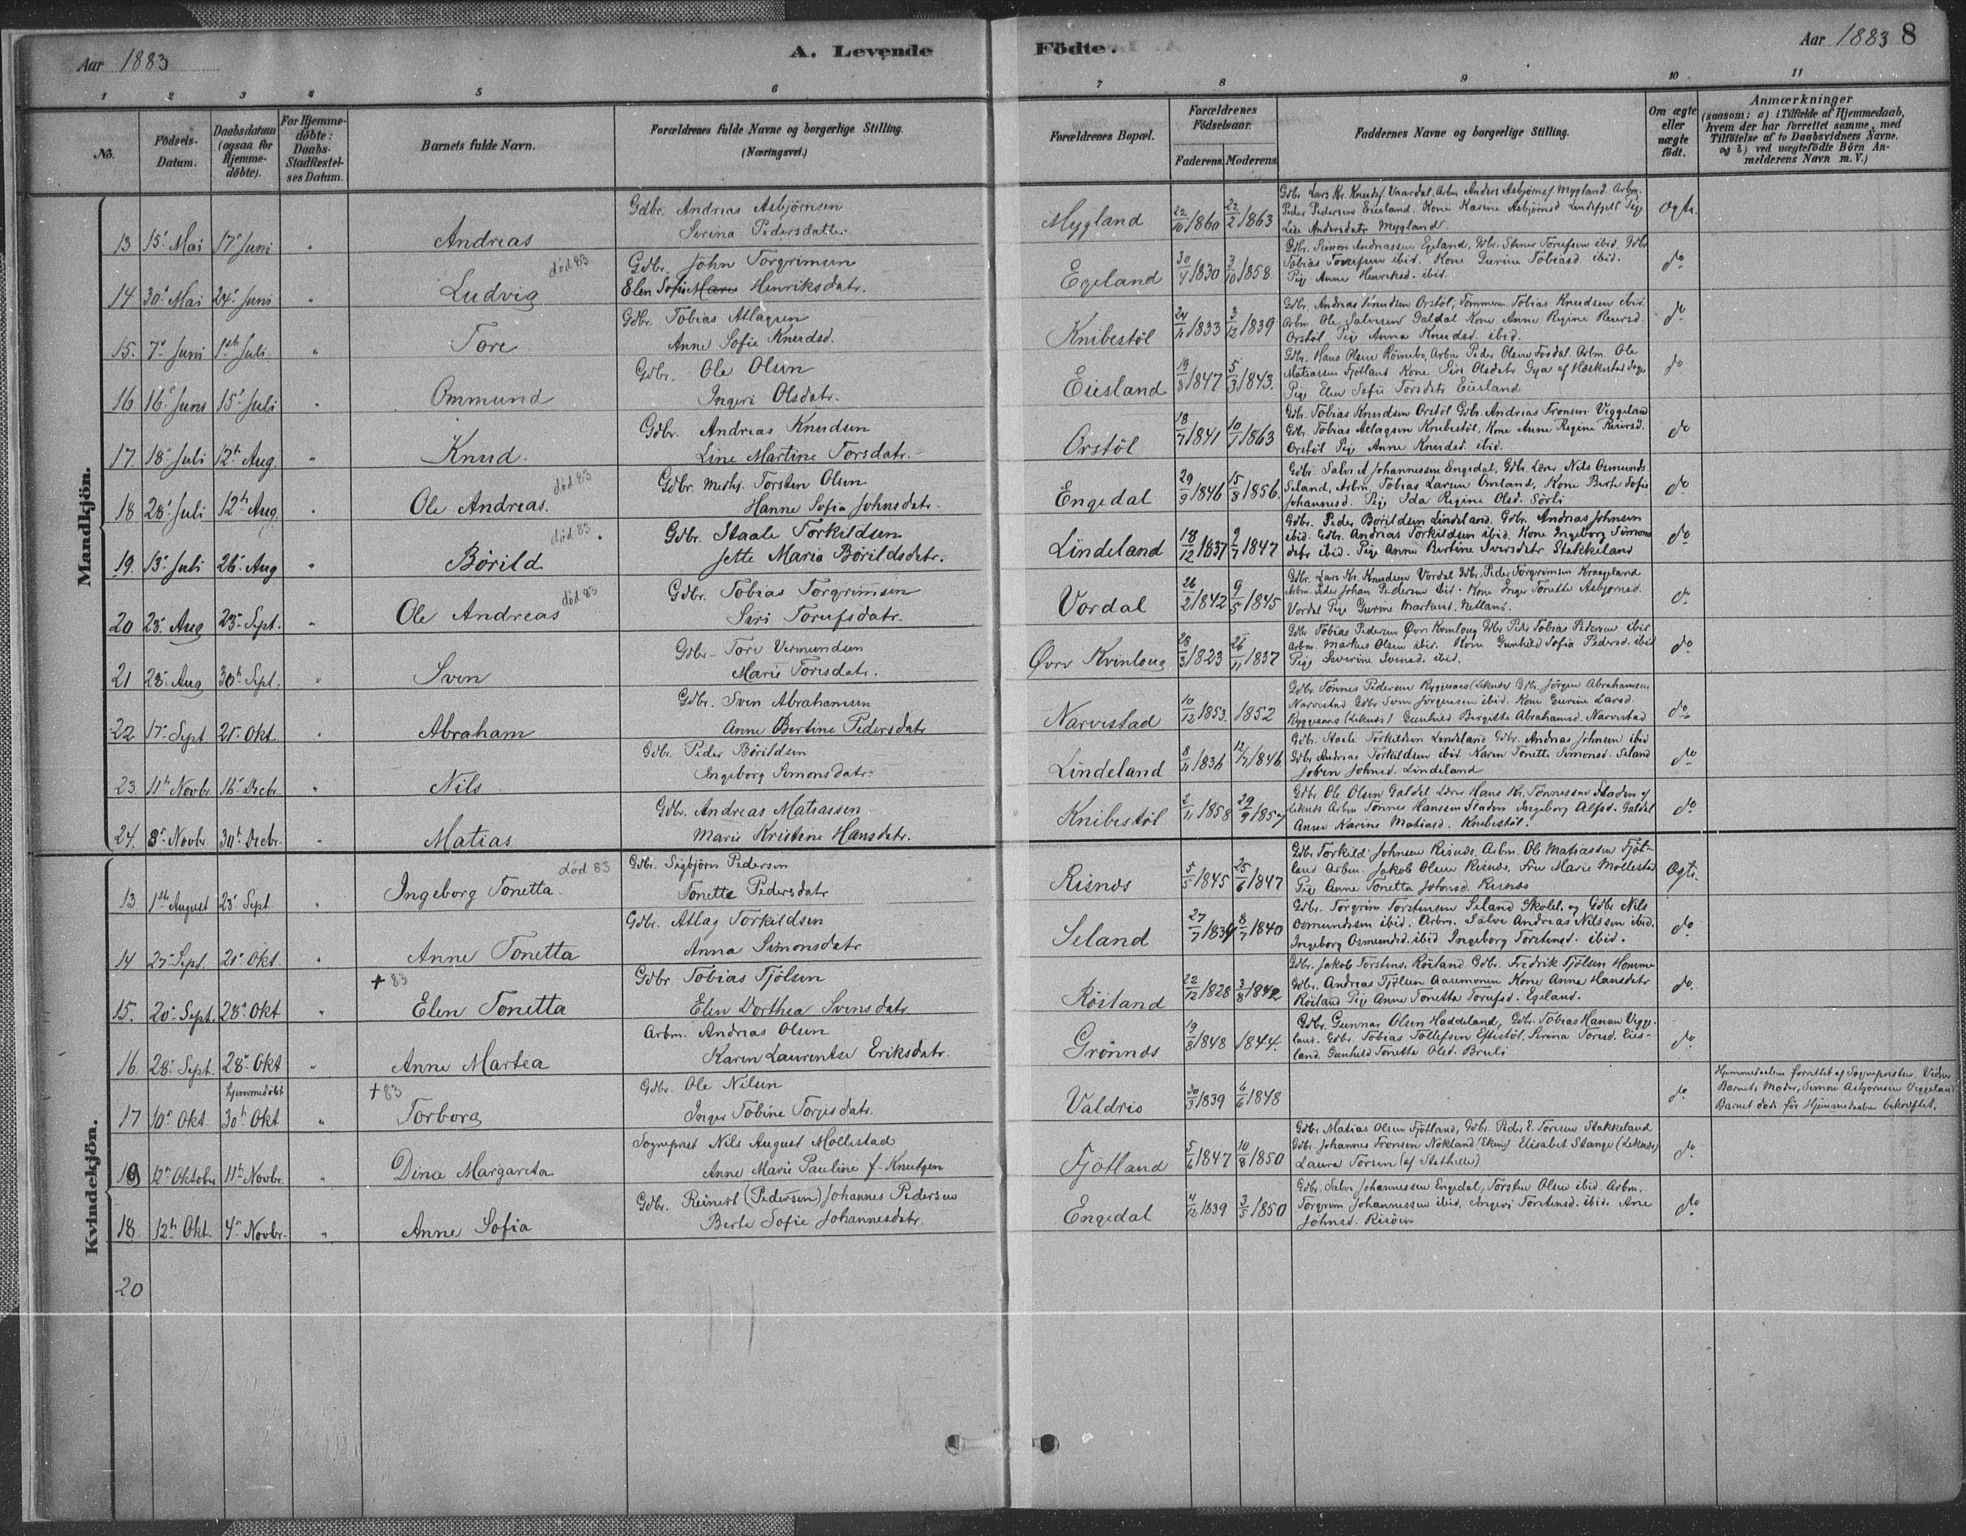 Aar 1883
A. Levende
Födte.
Aar 1883
8
1 2 3 4 5 6 7 8 9 10 11
No.
Födsels-Datum.
Daabsdatum (ogsaa for Hjemme-döbte).
For Hjemme-döbte: Daabs-Stadfæstel-ses Datum.
Barnets fulde Navn.
Forældrenes fulde Navne og borgerlige Stilling. (Næringsvei.)
Forældrenes Bopæl.
Forældrenes Födselsaar.
Faderens. Moderens.
Faddernes Navne og borgerlige Stilling.
Om ægte eller uægte födt.
Anmærkninger
(saasom: a) i Tilfælde af Hjemmedaab, hvem der har forrettet samme, med Tilföielse af to Daabsvidners Navne. og b) ved uægtefödte Börn An-melderens Navn m. V.)
Mandkjön.
Gdbr. Andreas Asbjörnsen
13 15de Mai 17de Juni " Andreas Serina Pedersdatter. Mygland 22/10 1860 22/2 1863
Gdbr. Lars Kr. Knuds. Vaardal, Arbm Anders Asbjörns. Mygland. Arbm.
Peder Pedersen Eiesland. Kone Karine Asbjörnsd. Lindefjeld Pige
Lise Andersdatr Mygland. Ægte.
død 83
Gdbr. John Torgrimsen
14 30de Mai 24de Juni " Ludvig Elen Sofie Marie Henriksdatr. Egeland 30/1 1830 3/10 1858
Gdbr. Simon Andreassen Egeland, Gdbr. Stener Torufsen ibid. Gdbr
Tobias Torufsen ibid. Kone Gurine Tobiasd. ibid.
Pige Anne Henriksd. ibid. do
Gdbr. Tobias Atlagsen
15. 7de Juni 1ste Juli " Tore Anne Sofie Knudsd. Knibestöl 24/11 1833 3/12 1839
Gdbr. Andreas Knudsen Orstöl, Tömmerm. Tobias Knudsen ibid.
Arbm Ole Salvesen Galdal Kone Anne Regine Reiersd.
Orstöl Pige Anna Knudsd. ibid. do
Gdbr. Ole Olsen
16 16de Juni 15de Juli " Ommund Ingeri Olsdatr. Eiesland 19/8 1847 5/3 1843.
Gdbr. Hans Olsen Rönnebo, Arbm Peder Olsen Fosdal Arbm. Ole
Matiassen Fjotland Kone Siri Olsdatr Gya af Hæskestad Sogn
Pige Elen Sofie Torsdatr Eiesland do
Gdbr. Andreas Knudsen
17. 18de Juli 12te Aug. " Knud. Line Martine Torsdatr. Orstöl 18/7 1841 10/1 1863
Gdbr. Tobias Knudsen Orstöl Gdbr. Andreas Tronsen Veggeland
Gdbr. Tobias Atlagsen Knibestöl, Kone Anne Regine Reiersd.
Orstöl Pige Anne Knudsd. ibid. do
død 83
Gdbr. Torsten Olsen
18 28de Juli 12te Aug. " Ole Andreas. Hanne Sofie Johnsdatr. Engedal 29/9 1846 15/8 1856.
Gdbr. Salve Johannessen Engedal, Gdbr. Lærer Nils Osmunds.
Seland, Arbm. Tobias Larsen Omland, Kone Berte Sofie
Johannesd. Pige Ida Regine Olsd. Sörli do
død 83
Gdbr. Staale Torkildsen
19. 13de Juli 26de Aug " Börild Jette Marie Börildsdatr. Lindeland 18/12 1837 2/7 1847
Gdbr. Peder Börildsen Lindeland. Gdbr. Andreas Johnsen
ibid. Gdbr. Andreas Torkildsen ibid. Kone Ingeborg Simons
datr ibid. Pige Anne Bertine Iversdatr Stakkeland do
død 83
Gdbr. Tobias Torgrimsen
20 23de Aug 23de Sept. " Ole Andreas Siri Torufsdatr. Vordal 26/2 1842 9/5 1845
Gdbr. Lars Kr. Knudsen Vordal Gdbr. Peder Torgrimsen Kraageland
Arbm. Peder Johan Pedersen ibid. Kone Inger Tonette Asbjörnsd.
Vordal Pige Gurine Markusd. Netland. do
Gdbr. Tore Vermundsen
21 23de Aug 30te Sept. " Sven Marie Toresdatr. Övre Kvinlaug 28/3 1823 26/11 1837
Gdbr Tobias Pedersen Övre Kvinlaug Gdbr Peder Tobias Pedersen ibid
Arbm. Markus Olsen ibid. Kone Gunhild Sofia Pedersd. ibid
Pige Severine Svensd. ibid. do
Gdbr. Sven Abrahamsen
22 17de Sept 21de Okt. " Abraham Anne Bertine Pedersdatr Narvestad 10/12 1853. 1852
Gdbr. Tönnes Pedersen Ryggsaas (Liknæs) Gdbr. Jörgen Abrahamsen
Narvestad Gdbr Sven Jörgensen ibid. Kone Gurine Larsd.
Ryggsaas (Liknæs) Gunhild Bergitte Abrahamsd. Narvestad do
Gdbr. Peder Börildsen
23 11te Novbr 16de Decbr. " Nils Ingeborg Simonsdatr. Lindeland 8/11 1836 12/7 1846
Gdbr. Staale Torkildsen Lindeland Gdbr. Andreas Johnsen ibid
Gdbr Andreas Torkildsen ibid. Karen Tonette Simonsd. Seland
Johnsd. Lindeland do
Gdbr. Andreas Matiassen
24. 8de Novbr. 30te Decbr. " Matias Marie Kristine Hansdatr. Knibestöl 2/11 1858 29/9 1857
Gdbr. Ole Olsen Galdal Lærer Hans Kr. Tönnessen Staden af
Liknæs Arbm Tönnes Hanssen Staden Ingeborg Alfsd. Galdal
Anne Karine Matiasd. Knibestöl. do
Kvindekjön.
død 83
Gdbr. Sigbjörn Pedersen
13 1ste August 23de Sept " Ingeborg Tonetta. Tonette Pedersdatr Risnæs 5/5 1845 25/6 1847
Gdbr Torkild Johnsen Risnæs. Arbm. Ole Matiassen Fjöt-
land Arbm. Jakob Olsen Risnæs, Fru Marie Möllestad
Pige Anne Tonetta Johnsd. Risnæs Ægte.
Gdbr. Atlag Torkildsen
14 23de Sept. 21de Okt. " Anne Tonetta Anna Simonsdatr Seland 27/7 1834 8/7 1840
Gdbr. Torgrim Torstensen Seland Skolel. og Gdbr Nils
Osmundsen ibid. Arbm. Salve Andreas Nilssen ibid.
Ingeborg Osmundsd. ibid Ingeborg Torstensd. ibid. do
+ 83
Gdbr Tobias Tjölsen
15. 20de Sept. 28de Okt " Elen Tonetta Elen Dorthea Svensdatr Röiland 22/12 1828 3/8 1842
Gdbr. Jakob Torstens. Röiland Gdbr. Fredrik Tjölsen Homme
Gdbr. Andreas Tjölsen Aasemoen Kone Anna Hansdatr
Röiland Pige Anne Tonetta Torufsd. Egeland. do.
Arbm. Andreas Olsen
16. 28de Sept. 28de Okt " Anne Martea Karen Laurentse Eriksdatr. Grönnæs 19/8 1848 1844.
Gdbr. Gunnar Olsen Haddeland, Gdbr. Tobias Hansen Vegge-
land. Gdbr. Tobias Tollefsen Eftestöl, Serina Torsd. Eies-
land. Gunhild Tonette Olsd. Bruli do.
hjemmedöbt
+ 83
Gdbr. Ole Nilsen
17 10de Okt. 30te Okt " Torborg Inger Tobine Torjesdatr. Valdris 30/3 1839 6/6 1848 do
Hjemmedaaben forrettet af Sognepresten. Vidner
Barnets Moder, Simon Asbjörnsen Veggeland
Barnet död för Hjemmedaaben bekræftet.
Sogneprest Nils August Möllestad
19 12te Oktober 11te Novbr. " Dina Margareta Anne Marie Pauline f. Knutzen Fjötland 5/6 1847 10/8 1850
Gdbr Matias Olsen Fjötland, Gdbr. Peder E. Toresen Stakkeland
Gdbr. Johannes Tronsen Nökland (Eken) Elisabet Stange (Liknæs)
Laura Torsen do.
Gdbr. Reinert (Pedersen) Johannes Pedersen
18. 12te Okt. 4de Novbr. " Anne Sofia Berte Sofie Johannesdatr. Engedal 4/12 1839 3/5 1850
Gdbr. Salve Johannessen Engedal, Torsten Olsen ibid Arbm.
Torgrim Johannessen ibid, Ingeri Torstensd. ibid. Ane
Johnsd. Risöen do.
20